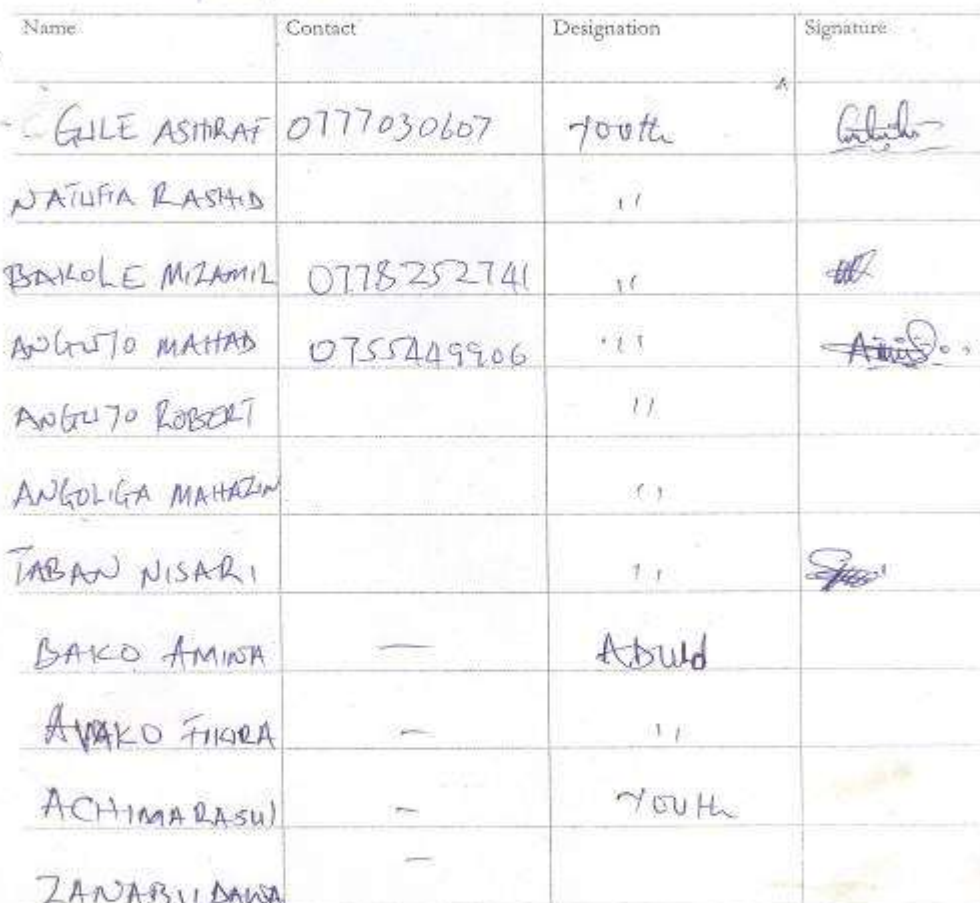 Name Contact Designation Signature
GULE ASHRAF 0777030607 Youth
NATUFIA RASHID ''
BAKOLE MIZAMIL 0778252741 ''
ANGUJO MAHAD 0755449906 ''
ANGUJO ROBERT ''
ANGOLIGA MAHAZIN ''
TABAN NISARI ''
BAKO AMINA — Aduld
AWAKO FIKIRA — ''
ACHIMA RASUL — Youth
ZANABU DAWA —